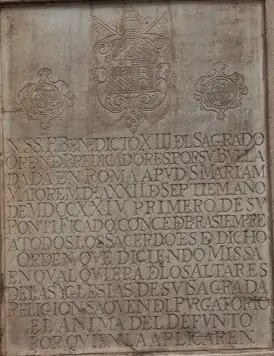 N.SS.P.BENEDICTO XIII DEL SAGRADO
ORDEN D PREDICADORES POR SV BVLLA
DADA EN ROMA APVD S MARIAM
MAIOREM DIA XXII D SEPTIEM ANO
DE MDCCXXIV PRIMERO DE SV
PONTIFICADO, CONCEDE PARA SIEMPRE
A TODOS LOS SACERDOTES D DICHO
ORDEN QVE DICIENDO MISSA
EN QVALQVIERA DE LOS ALTARES
DE LAS YGLESIAS DE SV SAGRADA
RELIGION SAQVEN DL PVRGATORIO
EL ANIMA DEL DEFVNTO
POR QVIEN LA APLICAREN